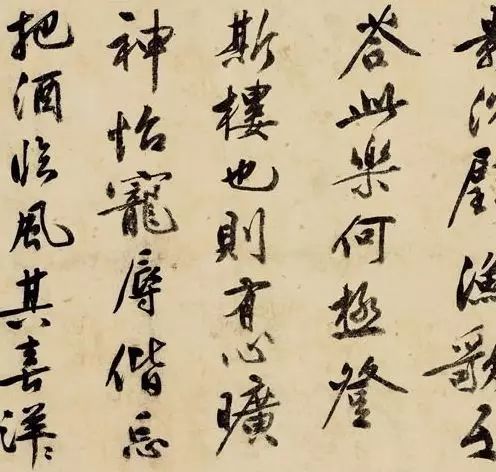 影沉璧漁歌互
荅此樂何極登
斯樓也則有心曠
神怡寵辱偕忘
把酒臨風其喜洋〻